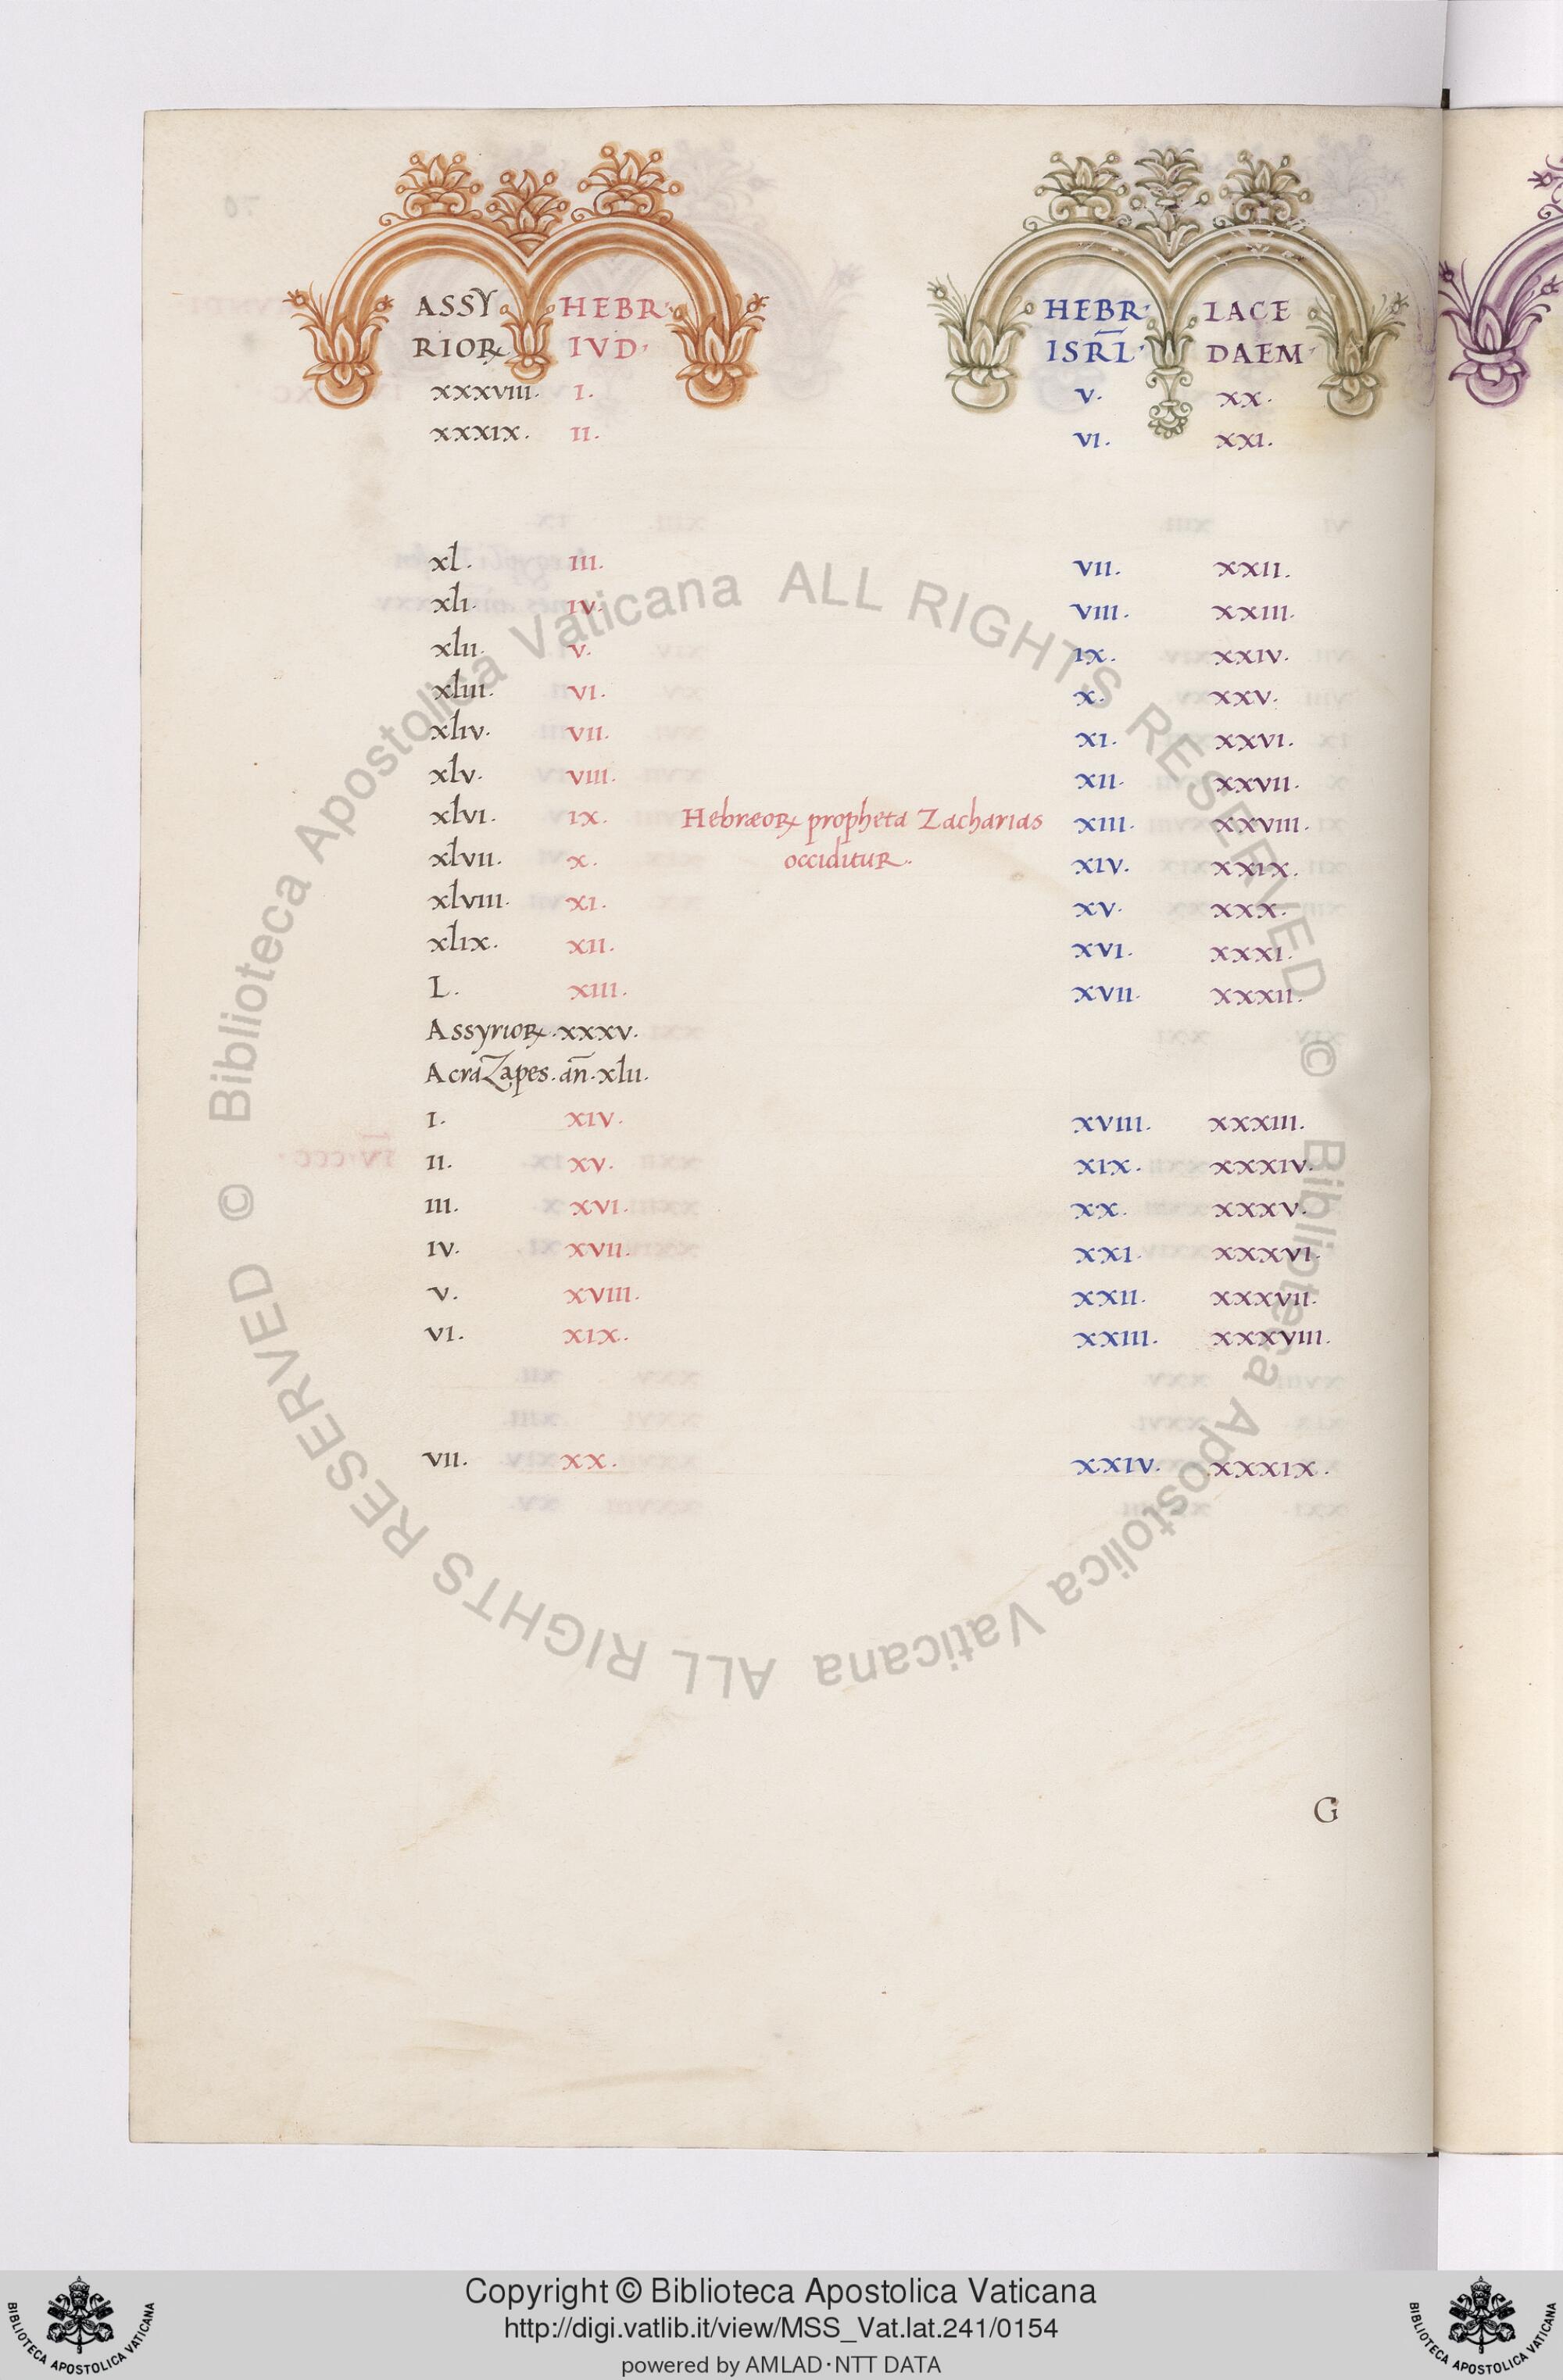 ASSY HEBR· HEBR· LACE
RIOꝜ IVD· ISR̅L· DAEM·
xxxviii. I. V. XX.
xxxix. II. VI. XXI.
xl. III. VII. XXII.
xli. IV. VIII. XXIII.
xlii. V. IX. XXIV.
xliii. VI. X. XXV.
xliv. VII. XI. XXVI.
xlv. VIII. XII. XXVII.
xlvi. IX. HebræoꝜ propheta Zacharias XIII. XXVIII.
xlvii. X. occiditur. XIV. XXIX.
xlviii. XI. XV. XXX.
xlix. XII. XVI. XXXI.
L. XIII. XVII. XXXII.
AssyrioꝜ.xxxv.
AcraZapes.an̅.xlii.
I. XIV. XVIII. XXXIII.
II. XV. XIX. XXXIV.
III. XVI. XX. XXXV.
IV. XVII. XXI. XXXVI.
V. XVIII. XXII. XXXVII.
VI. XIX. XXIII. XXXVIII.
VII. XX. XXIV. XXXIX.
G
© Biblioteca Apostolica Vaticana ALL RIGHTS RESERVED
© Biblioteca Apostolica Vaticana ALL RIGHTS RESERVED
Copyright © Biblioteca Apostolica Vaticana
http://digi.vatlib.it/view/MSS_Vat.lat.241/0154
powered by AMLAD·NTT DATA
BIBLIOTECA APOSTOLICA VATICANA
BIBLIOTECA APOSTOLICA VATICANA